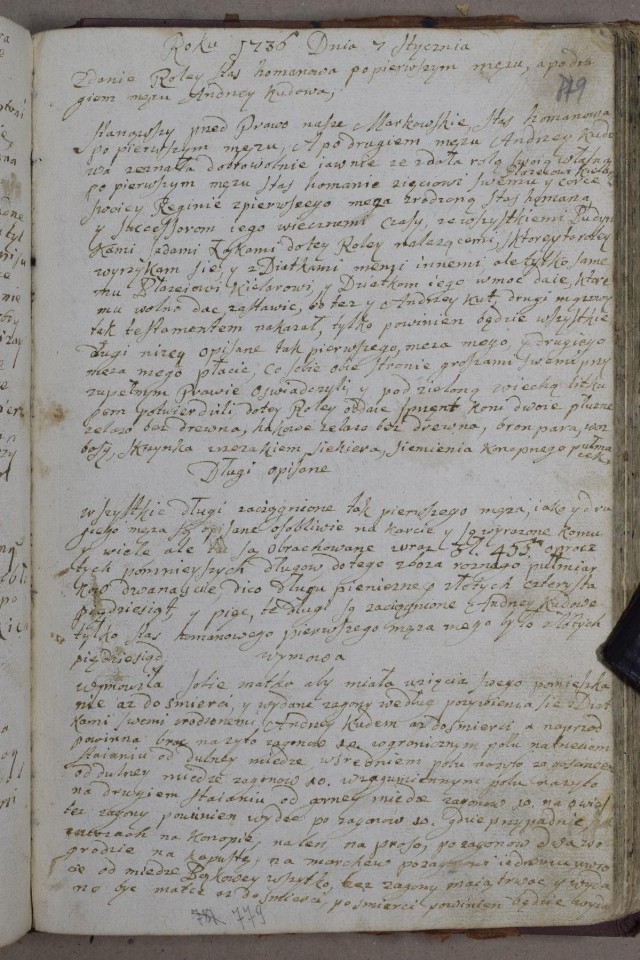 Roku 1736 Dnia 7 Stycznia
Zdanie Roley Stas homanowa po pierwszym mezu, a po dru
giem mezu Andrzey Kudowa,
779
Stanowszy przed Prawo nasze Markowskie, Stas homanowa
po pierwszym męzu, A po drugiem męzu Andrzey Kudo
wa zeznała dobrowolnie iawnie ze zdała rolą swoię własną
po pierwszym męzu Stas homanie zięciowi swemu y corce
Błazeiowi Kielar
swoiey Reginie z pierwszego męza zrodzoną Stas homana
y Sukcessorom iego wiecznemi Czasy, ze wszystkiemi Budyn
kami Sadami Łąkami do tey Roley nalezącemi, ktorey to roley
wyrzykam się, y z Dziatkami memi innemi, ale tylko same
mu Błazeiowi Kielarowi, y Dziatkom iego w moc daie, ktore
mu wolno dac, zastawic, bo tez y Andrzey Kut, drugi mąz moy
tak testamentem nakazał, tylko powinien będzie wszystkie
Długi nizey opisane tak pierwszego, meza mego, y drugiego
meza mego płacic, Co sobie obie stronie groszami swemi przy
zupełnym Prawie oswiadczyli, y pod zieloną wiechą litku
pem potwierdzili do tey Roley oddaie koni dwoie płuzne
zelazo bez drewna, hakowe zelazo bez drewna, bron para, woz
bosy, Skrzynka siekiera, Siemienia konopnego pułmia
cek,
Długi opisane
wszystkie Długi zaciągnione tak pierwszego męza, iako y dru
giego męza są opisane osobliwie na karcie y są wyrazone komu
y wiele ale są obrachowane wraz zł. 455 oprocz
tych pomnieyszych długow do tego zboza roznego pułmiar
kow dwanascie dico długu pieniezne złotych czterysta
pędziesiąt, y pięc, te długi są zaciągnione Andrzey Kudowe
tylko Stas homanowego pierwszego męza mego są to złotych
piędziesiąd
wymowa
Wymowiła Sobie matka aby miała u zięcia swego pomieszka
nie az do smierci, y wydanie zagony według pozywienia się z Dziat
kami swemi urodzonemi Andrzey Kudem az do smierci a naprzod
powinna brac na zyto zagonow 10. w granicznym polu na
Staianiu od dulney miedze w srednim polu na zyto zagonow
od dulney miedze zagonow 10. w polu na zyto
na drugiem Staianiu od gorney miedze zagonow 10. na owies
tez zagony powinien wydac po zagonow 10. gdzie przypadnie,
na konopie, na len, na proso, po zagonow dwa w o
grodzie na kapustę, na marchew po
od miedze Bąkowey wszytko, tez zagony maią trwac y wyda
ne byc matce az do smierci, po smierci powinien będzie
779